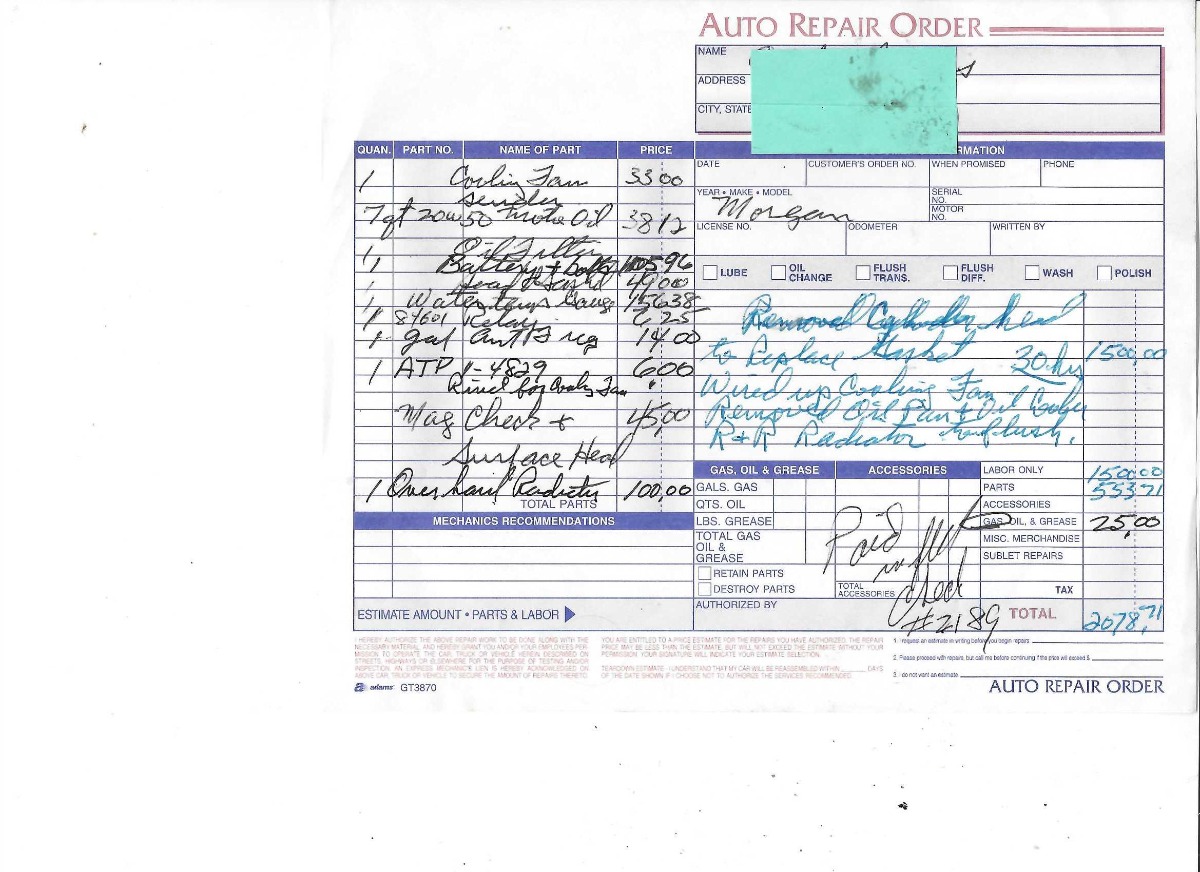 AUTO REPAIR ORDER
NAME
ADDRESS
CITY, STATE
QUAN. PART NO. NAME OF PART PRICE
RMATION
DATE CUSTOMER'S ORDER NO. WHEN PROMISED PHONE
1 Cooling Fan 33 00
sender
YEAR • MAKE • MODEL SERIAL NO.
Morgan MOTOR NO.
7 qt 20w 50 Moto Oil 38 12
LICENSE NO. ODOMETER WRITTEN BY
1 Oil Filter
1 Battery + 105 96
49 00
LUBE OIL CHANGE FLUSH TRANS. FLUSH DIFF. WASH POLISH
1 Water temp Gauge 156 38
1 84601 Relay 6 25
1 gal Anti F 14.00
1 ATP 1-4829 6 00
for Cooling Fan "
Mag Check + 45,00
Surface Head
1 Over haul Radiator 100,00
TOTAL PARTS
Removed Cylinder Head
to Replace Gasket 30 hr 1500,00
Wired up Cooling Fan
Removed Oil Pan + Oil Cooler
R + R Radiator to flush.
GAS, OIL & GREASE ACCESSORIES LABOR ONLY 1500 00
GALS. GAS PARTS 553 71
QTS. OIL ACCESSORIES
MECHANICS RECOMMENDATIONS
LBS. GREASE GAS, OIL, & GREASE 25,00
TOTAL GAS OIL & GREASE MISC. MERCHANDISE
SUBLET REPAIRS
Paid
in full
check
#2189
RETAIN PARTS
DESTROY PARTS TOTAL ACCESSORIES TAX
ESTIMATE AMOUNT • PARTS & LABOR
AUTHORIZED BY TOTAL 2078,71
I HEREBY AUTHORIZE THE ABOVE REPAIR WORK TO BE DONE ALONG WITH THE
NECESSARY MATERIAL, AND HEREBY GRANT YOU AND/OR YOUR EMPLOYEES PER-
MISSION TO OPERATE THE CAR, TRUCK OR VEHICLE HEREIN DESCRIBED ON
STREETS, HIGHWAYS OR ELSEWHERE FOR THE PURPOSE OF TESTING AND/OR
INSPECTION. AN EXPRESS MECHANIC'S LIEN IS HEREBY ACKNOWLEDGED ON
ABOVE CAR, TRUCK OR VEHICLE TO SECURE THE AMOUNT OF REPAIRS THERETO.
YOU ARE ENTITLED TO A PRICE ESTIMATE FOR THE REPAIRS YOU HAVE AUTHORIZED. THE REPAIR
PRICE MAY BE LESS THAN THE ESTIMATE, BUT WILL NOT EXCEED THE ESTIMATE WITHOUT YOUR
PERMISSION. YOUR SIGNATURE WILL INDICATE YOUR ESTIMATE SELECTION.
TEARDOWN ESTIMATE - I UNDERSTAND THAT MY CAR WILL BE REASSEMBLED WITHIN DAYS
OF THE DATE SHOWN IF I CHOOSE NOT TO AUTHORIZE THE SERVICES RECOMMENDED.
1. I request an estimate in writing before you begin repairs.
2. Please proceed with repairs, but call me before continuing if the price will exceed $
3. I do not want an estimate
adams GT3870
AUTO REPAIR ORDER